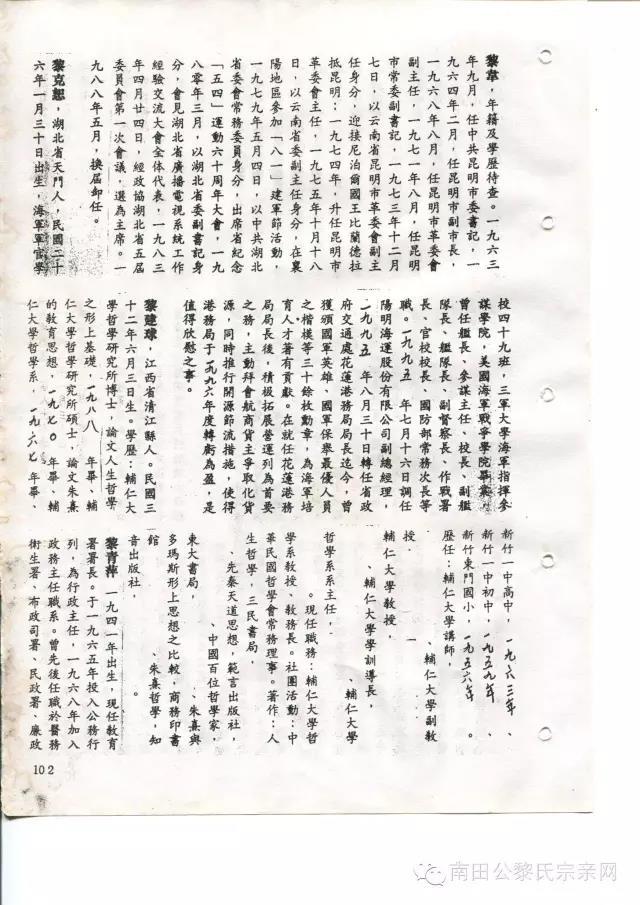 黎韋，年籍及學歷待查。一九六三
年九月，任中共昆明市委書記，一
九六四年二月，任昆明市副市長，
一九六八年八月，任昆明市革委會
副主任，一九七一年八月，任昆明
市常委副書記，一九七三年十二月
七日，以云南省昆明市革委會副主
任身分，迎接尼泊爾國王比蘭德拉
抵昆明：一九七四年，升任昆明市
革委會主任，一九七五年十月十八
日，以云南省委副主任身分，在襄
陽地區參加「八一」建軍節活動，
一九七九年五月四日，以中共湖北
省委會常務委員身分，出席省紀念
「五四」運動六十周年大會，一九
八零年三月，以湖北省委副書記身
分，會見湖北省廣播電視系統工作
經驗交流大會全体代表，一九八三
年四月廿四日，經政協湖北省五屆
委員會第一次會議，選為主席。一
九八八年五月，換屆卸任。
黎克恕，湖北省天門人，民國二十
六年一月三十日出生，海軍軍官學
校四十九班，三軍大學海軍指揮參
謀學院，美國海軍戰爭學院畢業，
曾任艦長、參謀主任、校長、副艦
隊長、艦隊長、副督察長、作戰署
長、官校校長、國防部常務次長等
職。一九九五年七月十六日調任
陽明海運股份有限公司副總經理，
一九九五年八月三十日轉任省政
府交通處花蓮港務局局長迄今，曾
獲頒國軍英雄、國軍保舉最優人員
之楷模等三十餘枚勳章，為海軍培
育人才著有貢獻。在就任花蓮港務
局局長後，積极拓展營運列為首要
之務，主動拜會航商貨主爭取化貨
源，同時推行開源節流措施，使得
港務局于一九九六年度轉衡為盈，是
值得欣慰之事。
黎建球，江西省清江縣人。民國三
十二年六月三日生。學歷：輔仁大
學哲學研究所博士，論文人生哲學
之形上基礎，一九八八年畢、輔
仁大學哲學研究所碩士，論文朱熹
的教育思想，一九七0年畢、輔
仁大學哲學系，一九六七年畢、
新竹一中高中，一九六三年、
新竹一中初中，一九五九年、
新竹東門國小，一九五六年。
歷任：輔仁大學講師，
、輔仁大學副教
授，
輔仁大學教授，
、輔仁大學學訓導長，
、輔仁大學
哲學系系主任，
。現任職務：輔仁大學哲
學系教授、教務長。社團活動：中
華民國哲學會常務理事。著作：人
生哲學，三民書局，
、先秦天道思想，範言出版社，
、中國百位哲學家，
東大書局，
、朱熹與
多瑪斯形上思想之比較，商務印書
館
、朱熹哲學，知
音出版社，
。
黎青萍　一九四一年出生，現任教育
署署長。于一九六五年投入公務行
列，為行政主任，一九六八年加入
政務主任職系。曾先後任職於醫務
衛生署、布政司署、民政署、廉政
102
南田公黎氏宗亲网